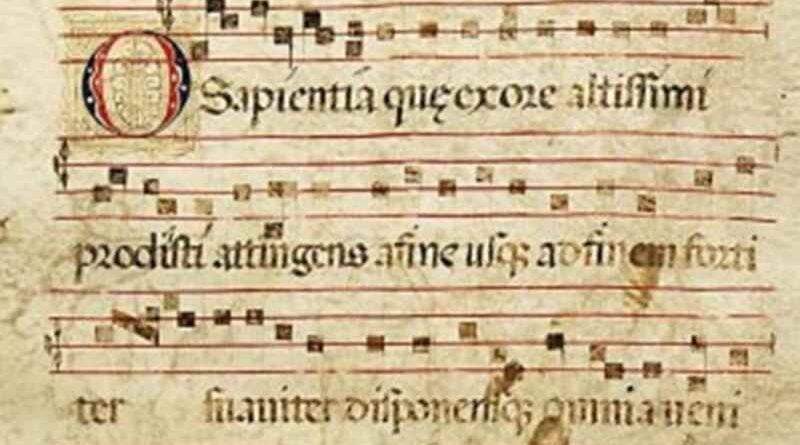 O Sapientia quę ex ore altissimi
prodisti attingens a fine usqꝫ ad finem forti
ter suauiter disponensqꝫ omnia ueni